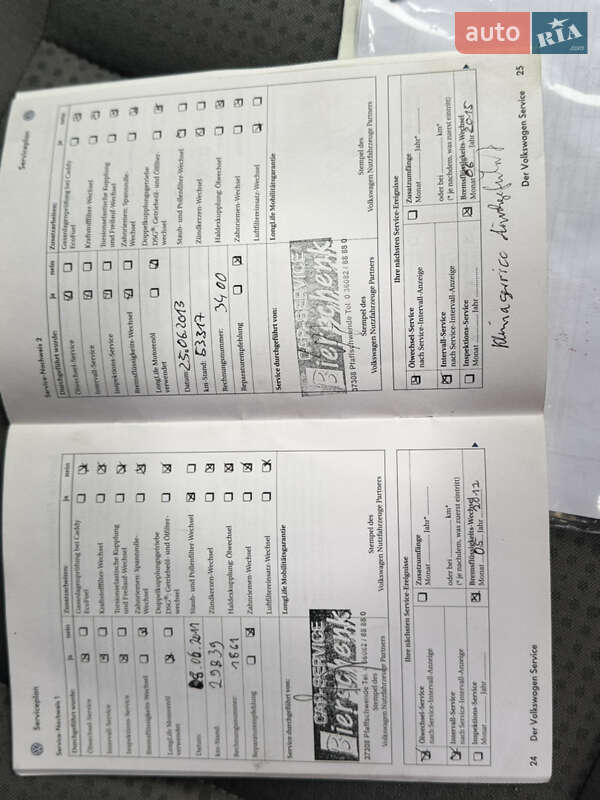 auto RIA
.com
Serviceplan
Service-Nachweis 1
Durchgeführt wurde: ja nein
Ölwechsel-Service
Intervall-Service
Inspektions-Service
Bremsflüssigkeits-Wechsel
LongLife Motorenöl
verwendet
Datum: 08.06.2011
km-Stand: 29839
Rechnungsnummer: 1861
Reparaturempfehlung
Service durchgeführt vom:
CAR-SERVICE
Bierschenk
37308 Pfaffschwende Tel. 0 36082 / 88 88 0
Stempel des
Volkswagen Nutzfahrzeuge Partners
Zusatzarbeiten: ja nein
Gasanlagenprüfung bei Caddy
EcoFuel
Kraftstofffilter-Wechsel
Torsionselastische Kupplung
und Freilauf-Wechsel
Zahnriemen- Spannrolle-
Wechsel
Doppelkupplungsgetriebe
DSG®: Getriebeöl- und Ölfilter-
wechsel
Staub- und Pollenfilter-Wechsel
Zündkerzen-Wechsel
Haldexkupplung: Ölwechsel
Zahnriemen-Wechsel
Luftfiltereinsatz-Wechsel
LongLife Mobilitätsgarantie
Stempel des
Volkswagen Nutzfahrzeuge Partners
Ihre nächsten Service-Ereignisse
Ölwechsel-Service
nach Service-Intervall-Anzeige
Intervall-Service
nach Service-Intervall-Anzeige
Inspektions-Service
Monat Jahr
Zusatzumfänge
Monat Jahr*
oder bei km*
(* je nachdem, was zuerst eintritt)
Bremsflüssigkeits-Wechsel
Monat 05 Jahr 2012
24 Der Volkswagen Service
Serviceplan
Service-Nachweis 2
Durchgeführt wurde: ja nein
Ölwechsel-Service
Intervall-Service
Inspektions-Service
Bremsflüssigkeits-Wechsel
LongLife Motorenöl
verwendet
Datum: 25.06.2013
km-Stand: 53317
Rechnungsnummer: 3400
Reparaturempfehlung
Service durchgeführt vom:
CAR-SERVICE
Bierschenk
37308 Pfaffschwende Tel. 0 36082 / 88 88 0
Stempel des
Volkswagen Nutzfahrzeuge Partners
Zusatzarbeiten: ja nein
Gasanlagenprüfung bei Caddy
EcoFuel
Kraftstofffilter-Wechsel
Torsionselastische Kupplung
und Freilauf-Wechsel
Zahnriemen- Spannrolle-
Wechsel
Doppelkupplungsgetriebe
DSG®: Getriebeöl- und Ölfilter-
wechsel
Staub- und Pollenfilter-Wechsel
Zündkerzen-Wechsel
Haldexkupplung: Ölwechsel
Zahnriemen-Wechsel
Luftfiltereinsatz-Wechsel
LongLife Mobilitätsgarantie
Stempel des
Volkswagen Nutzfahrzeuge Partners
Ihre nächsten Service-Ereignisse
Ölwechsel-Service
nach Service-Intervall-Anzeige
Intervall-Service
nach Service-Intervall-Anzeige
Inspektions-Service
Monat Jahr
Zusatzumfänge
Monat Jahr*
oder bei km*
(* je nachdem, was zuerst eintritt)
Bremsflüssigkeits-Wechsel
Monat 06 Jahr 2015
Klimaservice durchgeführt
Der Volkswagen Service 25